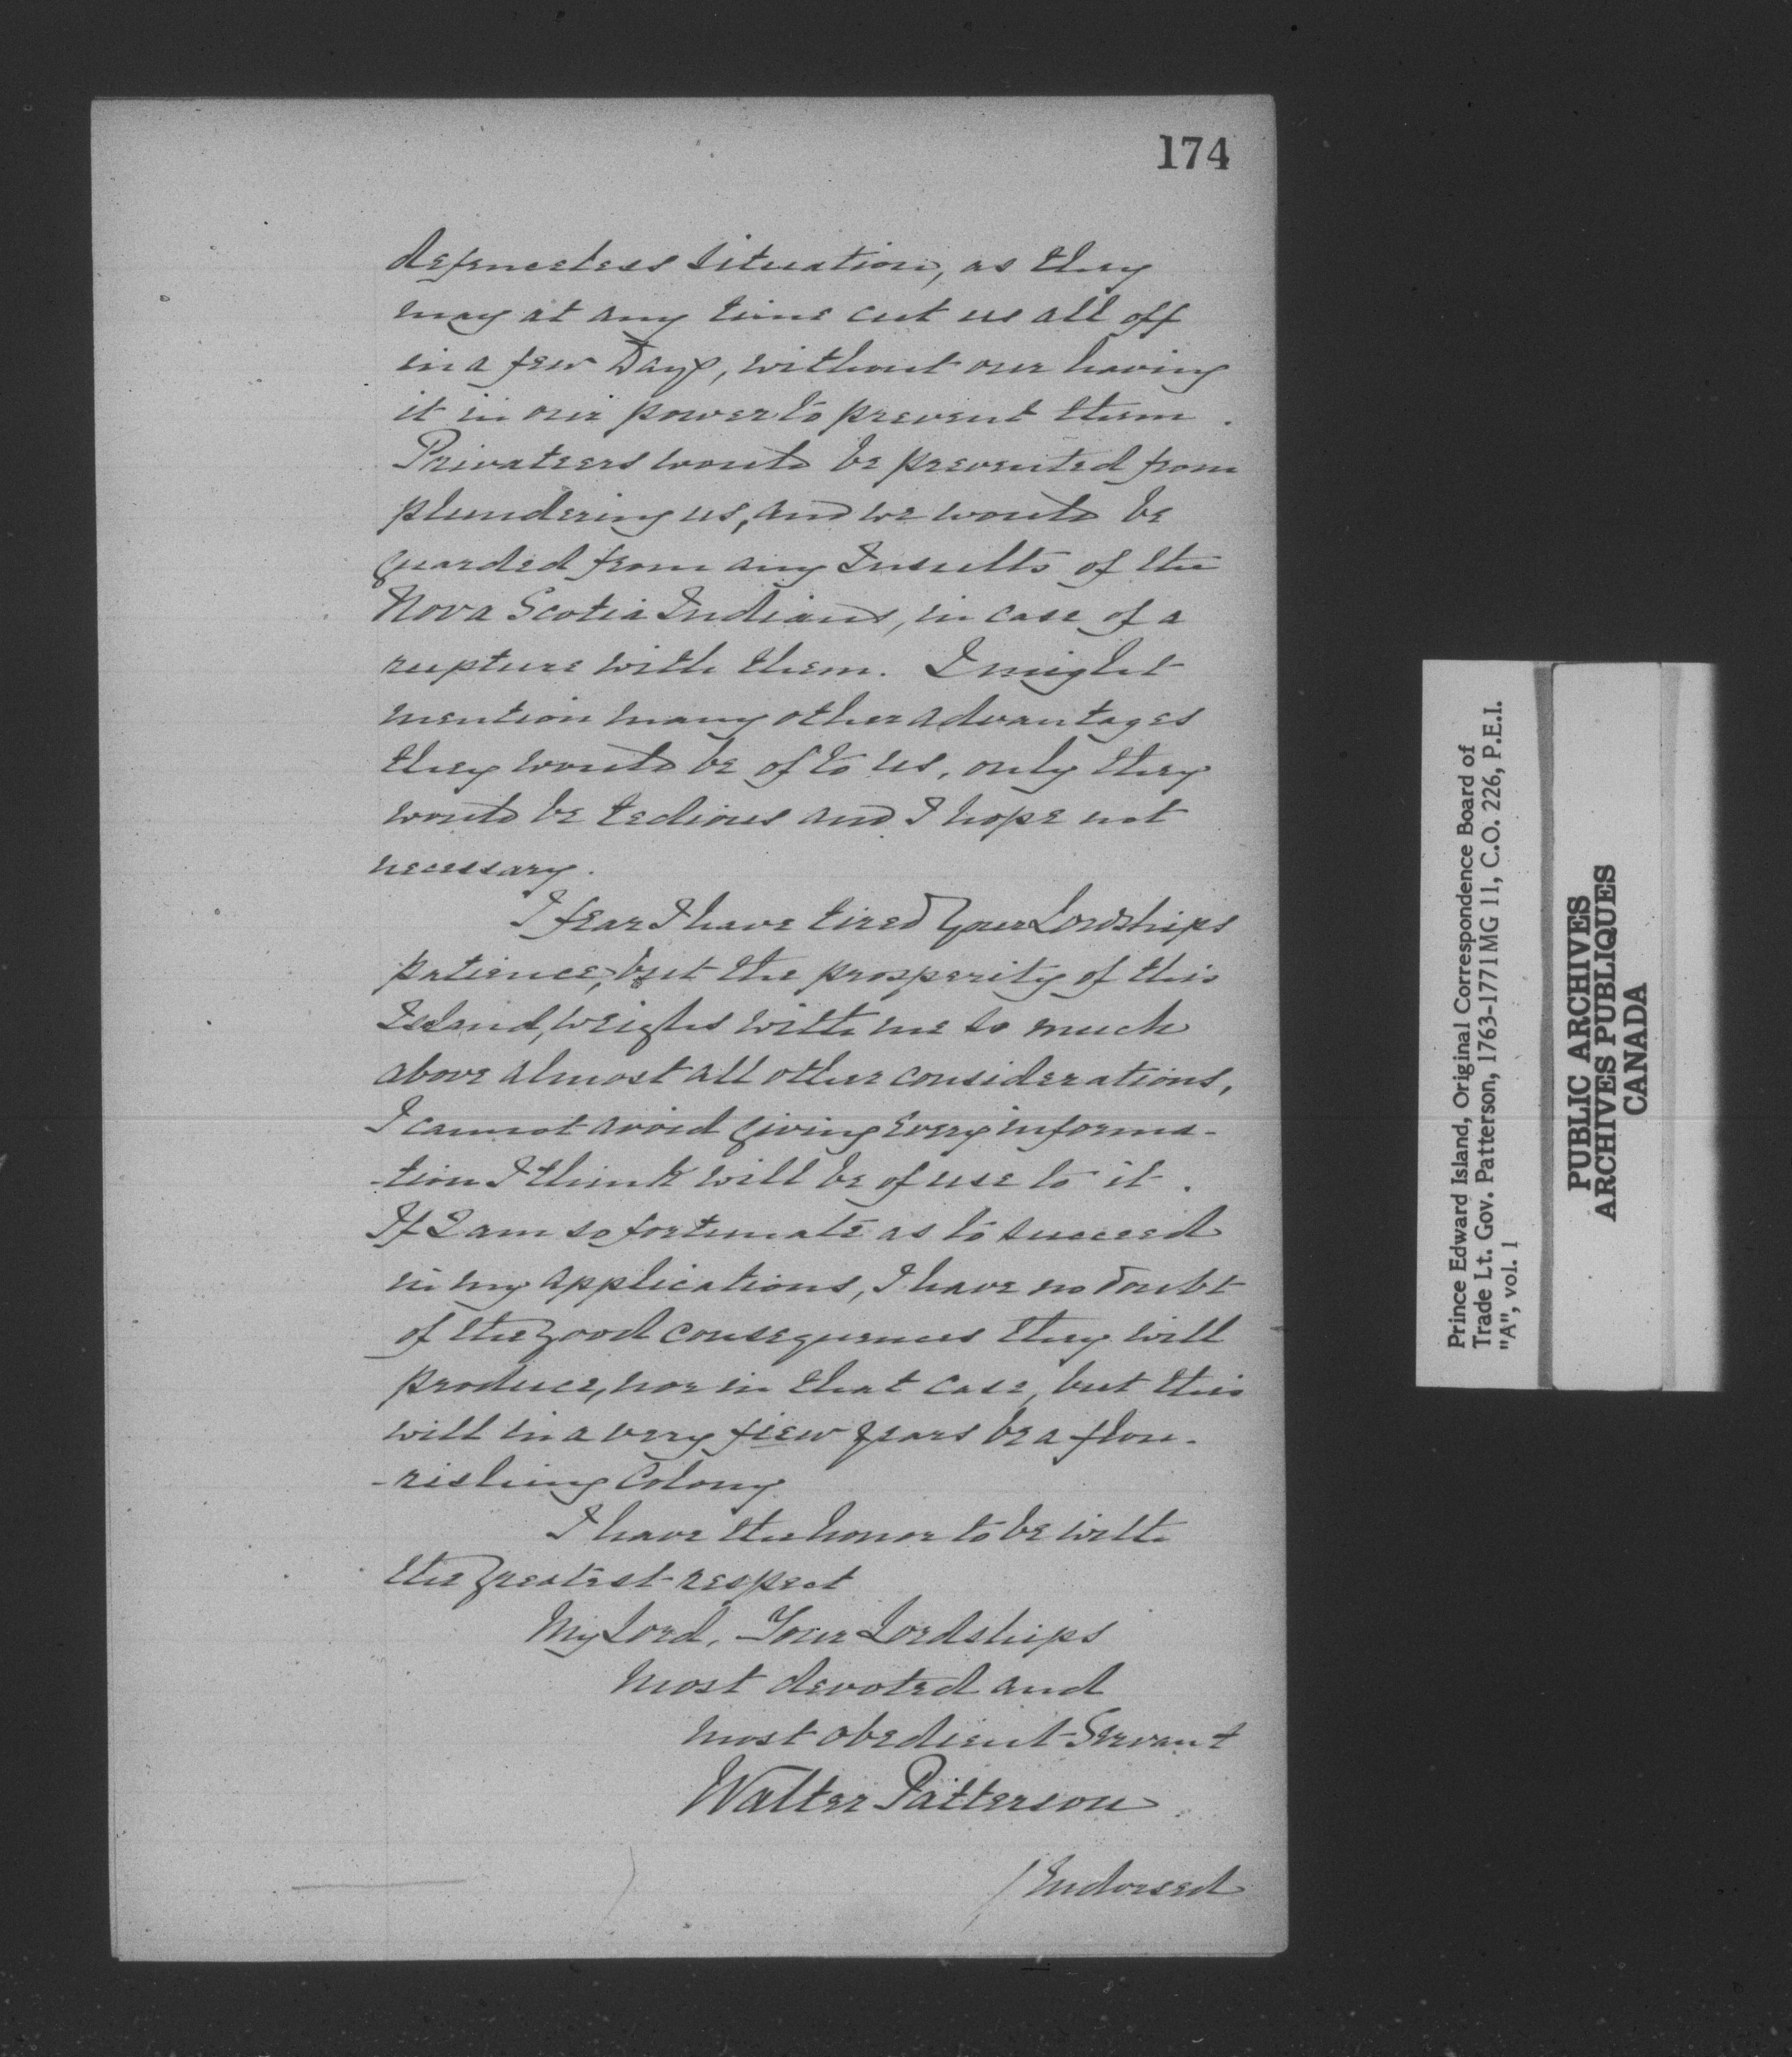 174
defenceless situation, as they
may at any time cut us all off
in a few Days, without our having
it in our power to prevent them.
Privateers would be prevented from
plundering us, and we would be
guarded from any Insults of the
Nova Scotia Indians, in case of a
rupture with them. I might
mention many other advantages
they would be of to us, only they
would be tedious and I hope not
necessary.
I fear I have tired Your Lordships
patience, but the prosperity of this
Island, weighs with me so much
above almost all other considerations,
I cannot avoid giving every informa-
-tion I think will be of use to it.
If I am so fortunate as to succeed
in my applications, I have no doubt
of the good consequences they will
produce, nor in that case, but this
will in a very fiew years be a flou-
-rishing Colony
I have the honor to be with
the greatest respect
My Lord, Your Lordships
most devoted and
most obedient Servant
Walter Patterson.
/Endorsed
Prince Edward Island, Original Correspondence Board of
Trade Lt. Gov. Patterson, 1763-1771MG 11, C.O. 226, P.E.I.
"A", vol. 1
PUBLIC ARCHIVES
ARCHIVES PUBLIQUES
CANADA